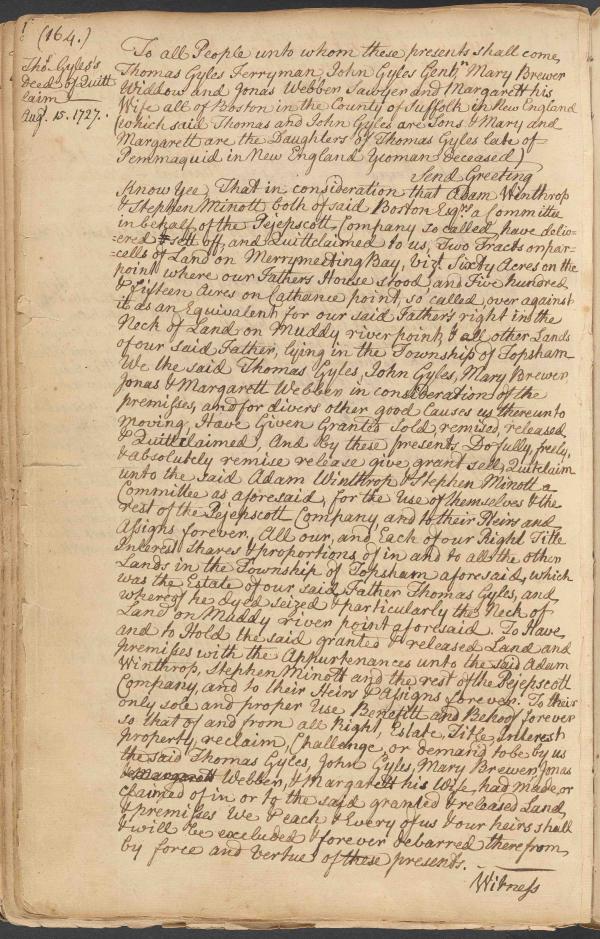 (164.)
Tho.s Gyles's
Deed of Quitt
claim
Aug.t 15. 1727.
To all People unto whom these presents shall come,
Thomas Gyles Ferryman, John Gyles Gent.n Mary Brewer
Widdow and Jonas Webber Sawyer and Margarett his
Wife all of Boston in the County of Suffolk in New England
(which said Thomas and John Gyles are Sons & Mary and
Margarett are the Daughters of Thomas Gyles late of
Pemmaquid in New England Yeoman deceased)
Send Greeting
Know Yee, That in consideration that Adam Winthrop
& Stephen Minott both of said Boston Esq.rs a Committee
in behalf of the Pejepscott Company so called, have deliv=
=ered & sett off, and Quittclaimed to us, Two Tracts or par=
=cells of Land on Merrymeeting Bay, viz.t Sixty Acres on the
point where our Fathers House stood, and Five hundred
& Fifteen Acres on Cathance point, so called, over against
it as an Equivalent for our said Fathers right in the
Neck of Land on Muddy river point, & all other Lands
of our said Father, lying in the Township of Topsham
We the said Thomas Gyles, John Gyles, Mary Brewer,
Jonas & Margarett Webber in consideration of the
premisses, and for divers other good Causes us thereunto
moving, Have Given Granted Sold remised, released
& Quittclaimed, And by these presents Do fully, freely,
& absolutely remise release give grant sell, Quitclaim
unto the said Adam Winthrop & Stephen Minott a
Committee as aforesaid, for the Use of themselves & the
rest of the Pejepscott Company, and to their Heirs and
Assigns forever, All our, and Each of our Right Title
Interest Shares & proportions, of in and to all the other
Lands in the Township of Topsham aforesaid, which
was the Estate of our said Father Thomas Gyles, and
whereof he dyed seized & particularly the Neck of
Land on Muddy river point aforesaid. To Have
and to Hold the said granted & released Land and
premisses with the Appurtenances unto the said Adam
Winthrop, Stephen Minott and the rest of the Pejepscott
Company, and to their Heirs & Assigns forever. To their
only sole and proper Use Benefitt and Behoof forever
so that of and from all Right, Estate, Title, Interest
property, reclaim, Challenge, or demand to be by us
the said Thomas Gyles, John Gyles, Mary Brewer, Jonas
Webber, & Margarett his Wife, had made, or
claimed of in or to the said granted & released Land,
& premisses We Peach & Every of us & our heirs shall
& will be excluded & forever debarred therefrom,
by force and vertue of these presents.
Witness